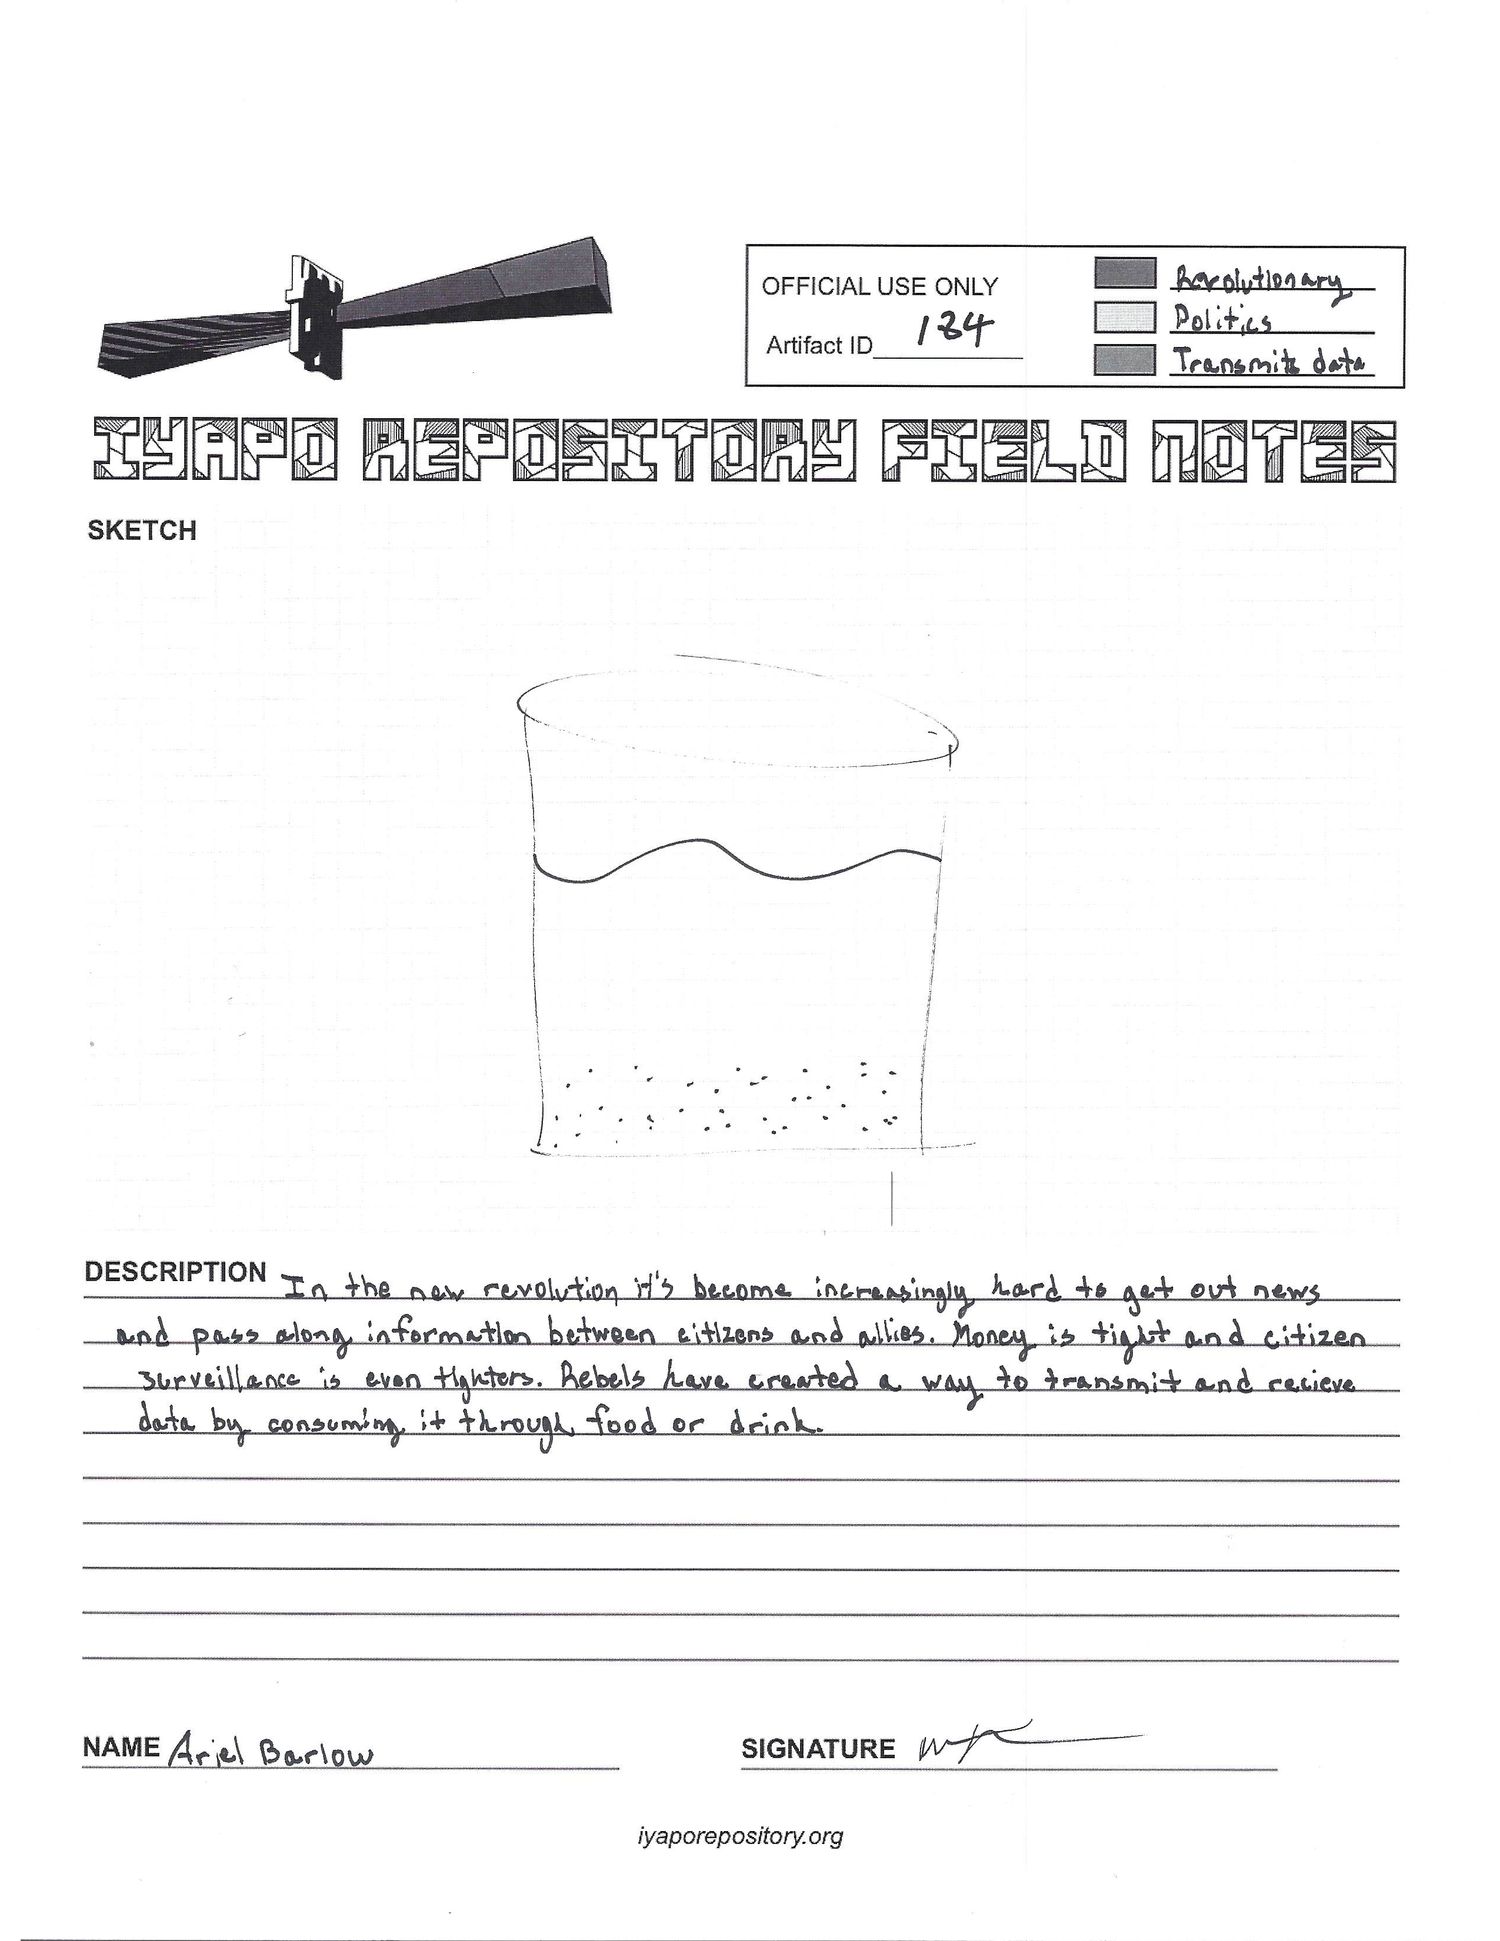 OFFICIAL USE ONLY
Artifact ID 184
Revolutionary
Politics
Transmits data
IYAPO REPOSITORY FIELD NOTES
SKETCH
DESCRIPTION In the new revolution it's become increasingly hard to get out news
and pass along information between citizens and allies. Money is tight and citizen
surveillance is even tighters. Rebels have created a way to transmit and recieve
data by consuming it through food or drink.
NAME Ariel Barlow
SIGNATURE
iyaporepository.org